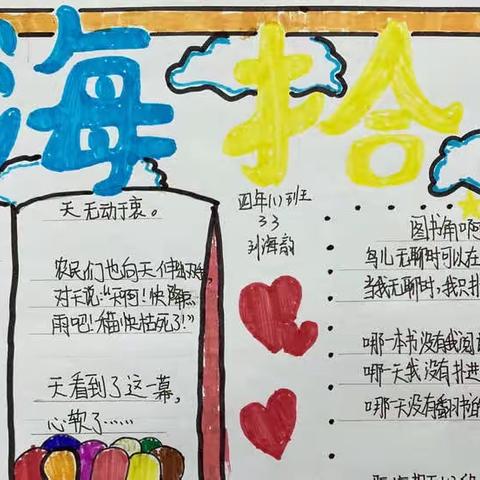 海拾
天无动于衷。
农民们也向天伸出双手,
对天说:“天啊!快降点
雨吧!稻快枯死了!”
天看到了这一幕,
心软了……
四年(1)班
33
刘海韵
图书角啊
鸟儿无聊时可以在
当我无聊时,我只扑
哪一本书没有我阅读
哪一天我没有扑进
哪一天没有翻书的